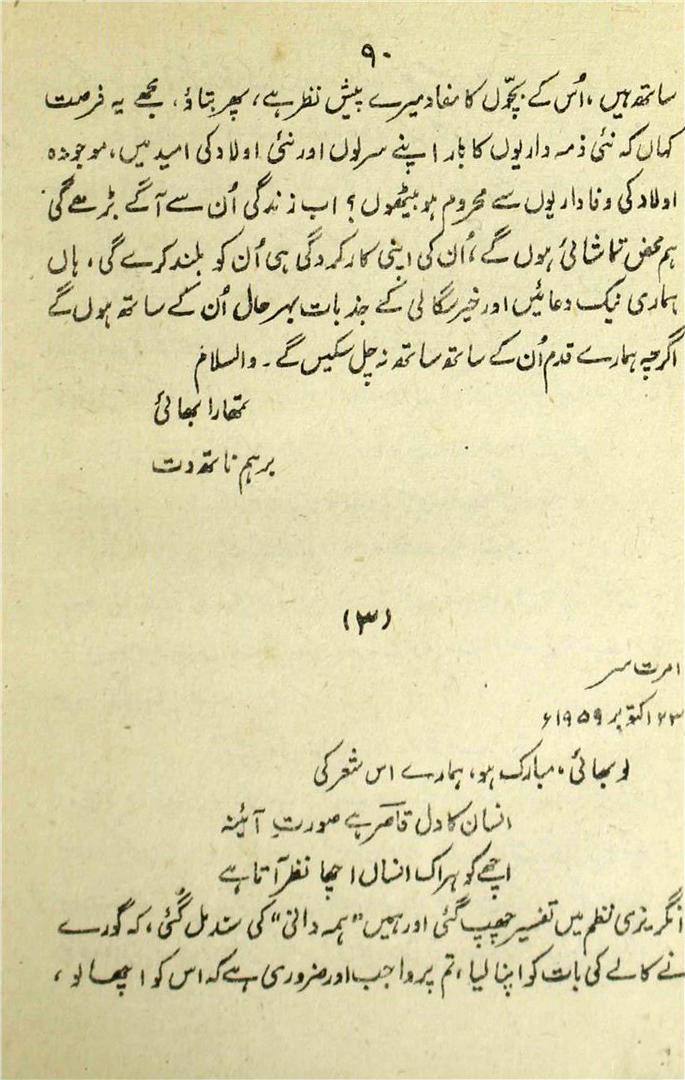 ۹۰
ساتھ ہیں، اُس کے بچّوں کا مفاد میرے پیش نظر ہے، پھر بتاؤ، مجھے یہ فرصت
کہاں کہ نئی ذمہ داریوں کا بار اپنے سرلوں اور نئی اولاد کی امید میں، موجودہ
اولاد کی وفاداریوں سے محروم ہو بیٹھوں؟ اب زندگی اُن سے آگے بڑھے گی
ہم محض تماشائی ہوں گے، اُن کی اپنی کارکردگی ہی اُن کو بلند کرے گی، ہاں
ہماری نیک دعائیں اور خیرسگالی کے جذبات بہر حال اُن کے ساتھ ہوں گے
اگرچہ ہمارے قدم اُن کے ساتھ ساتھ نہ چل سکیں گے۔ والسلام
تمھارا بھائی
برہم ناتھ دت
(۳)
امرت سر
۲۳ اکتوبر ۱۹۵۹ء
لو بھائی، مبارک ہو، ہمارے اس شعر کی
انسان کا دل قاصر ہے صورتِ آئینہ
اچھے کو ہر اک انساں اچھا نظر آتا ہے
انگریزی نظم میں تفسیر چھپ گئی اور ہمیں "ہمہ دانی" کی سند مل گئی، کہ گورے
نے کالے کی بات کو اپنا لیا، تم پر واجب اور ضروری ہے کہ اس کو اچھالو،